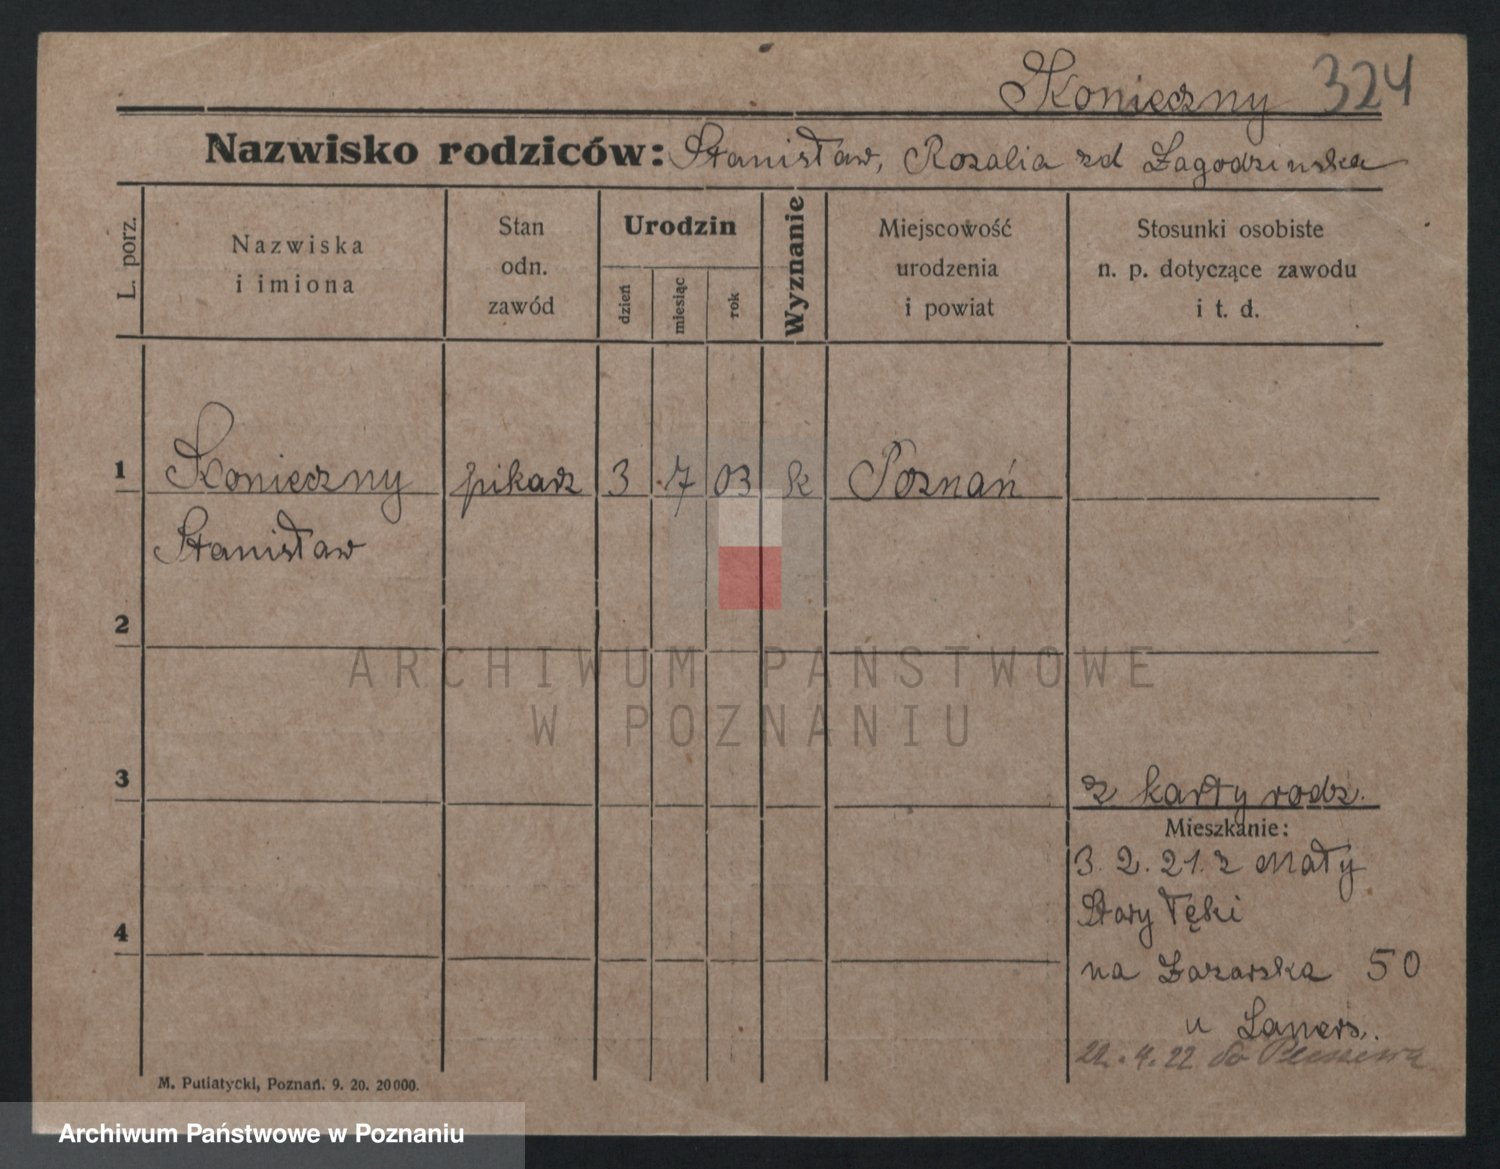 Konieczny 324
Nazwisko rodziców: Stanisław, Rozalia zd Łagodzinska
L. porz.
Nazwiska
i imiona
Stan
odn.
zawód
Urodzin
dzień
miesiąc
rok
Wyznanie
Miejscowość
urodzenia
i powiat
Stosunki osobiste
n. p. dotyczące zawodu
i t. d.
1 Konieczny pikarz 3 7 03 k Poznań
Stanisław
2
3
z karty rodz.
Mieszkanie:
3. 2. 21. z Mały
Stary Łęki
4
na Łazarska 50
u
22. 4. 22 do
M. Putiatycki, Poznań. 9. 20. 20000.
ARCHIWUM PAŃSTWOWE
W POZNANIU
Archiwum Państwowe w Poznaniu